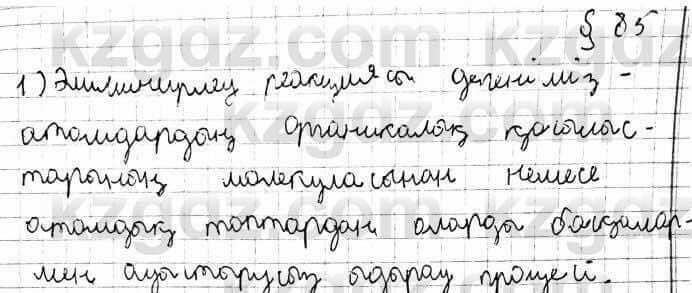 § 85
1) Элиминирлеу реакциясы дегеніміз -
атомдардың органикалық қосылыс-
тарының молекуласынан немесе
атомдық топтардан оларды басқалар-
мен ауыстырусыз ыдырау процесі.